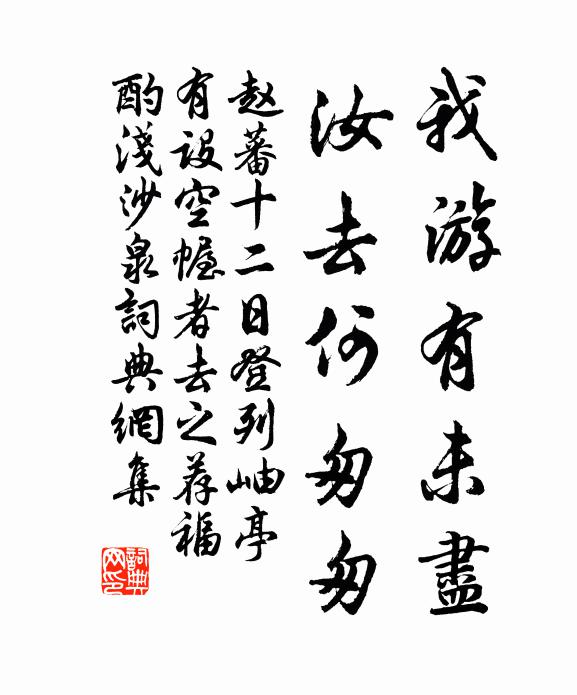 我游有未盡
汝去何匆匆
赵蕃十二日登列岫亭
有设空幄者去之荐福
酌淺沙泉詞典網集
詞典网印